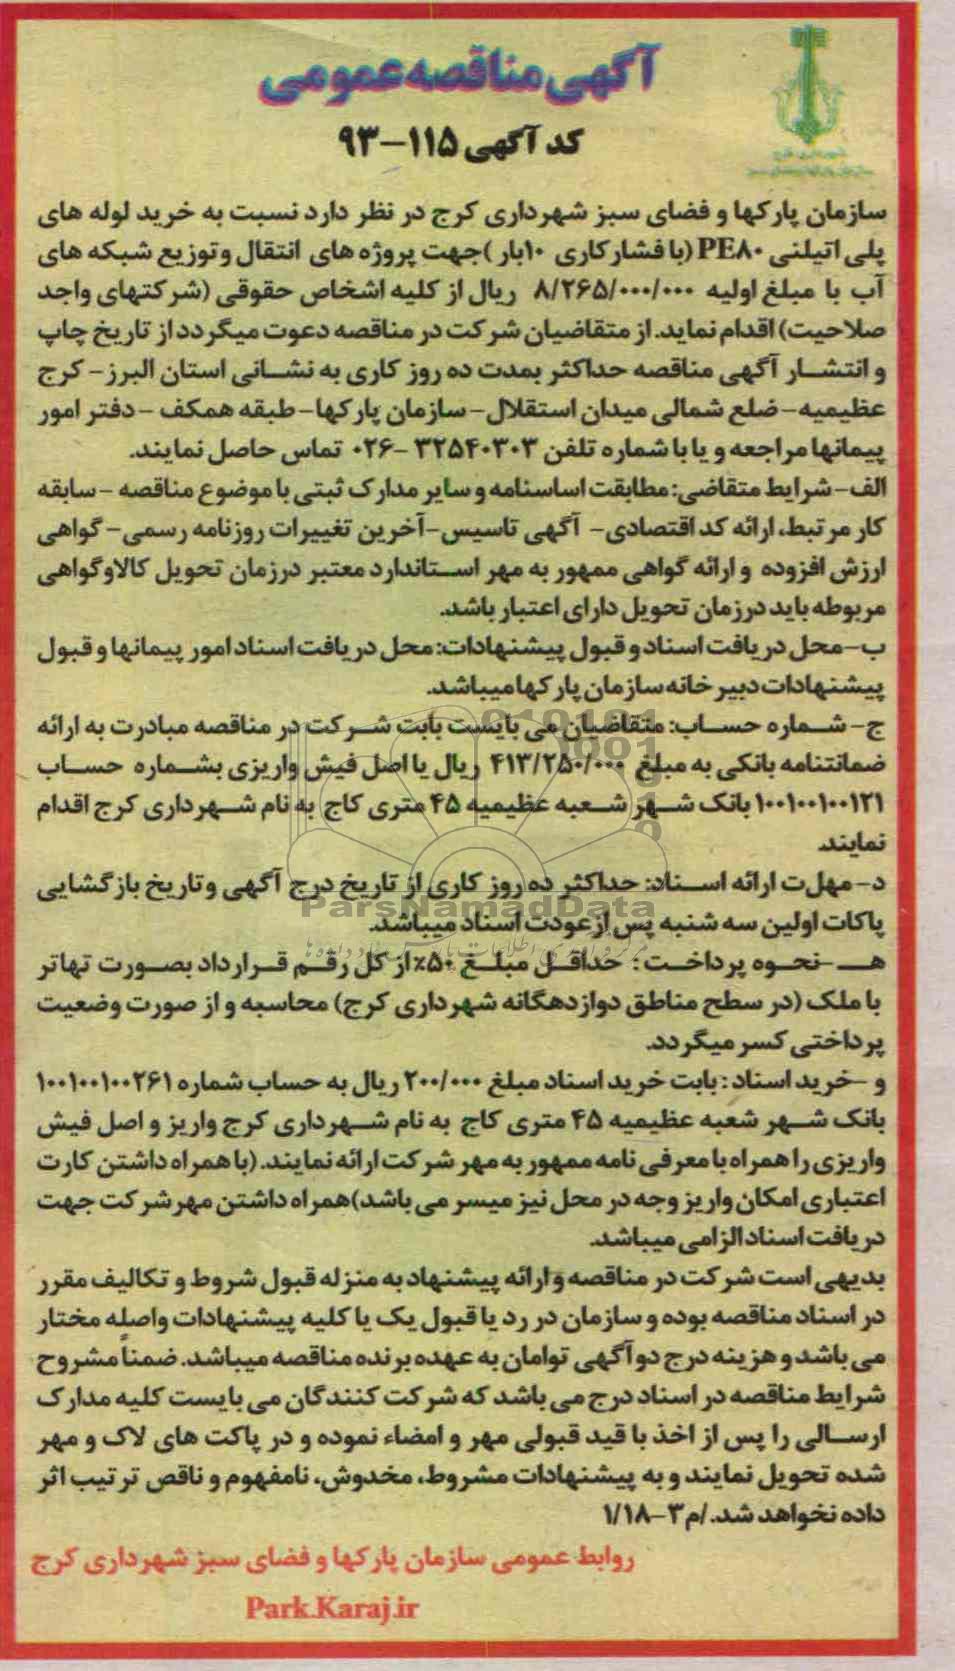 آگهی مناقصه عمومی
کد آگهی ۱۱۵-۹۳
شهرداری کرج
سازمان پارکها و فضای سبز شهرداری کرج در نظر دارد نسبت به خرید لوله های
پلی اتیلنی PE۸۰ (با فشار کاری ۱۰بار) جهت پروژه های انتقال و توزیع شبکه های
آب با مبلغ اولیه ۸/۲۶۵/۰۰۰/۰۰۰ ریال از کلیه اشخاص حقوقی (شرکتهای واجد
صلاحیت) اقدام نماید. از متقاضیان شرکت در مناقصه دعوت میگردد از تاریخ چاپ
و انتشار آگهی مناقصه حداکثر بمدت ده روز کاری به نشانی استان البرز- کرج
عظیمیه- ضلع شمالی میدان استقلال- سازمان پارکها- طبقه همکف - دفتر امور
پیمانها مراجعه و یا با شماره تلفن ۳۲۵۴۰۳۰۳ -۰۲۶ تماس حاصل نمایند.
الف- شرایط متقاضی: مطابقت اساسنامه و سایر مدارک ثبتی با موضوع مناقصه - سابقه
کار مرتبط، ارائه کد اقتصادی- آگهی تاسیس- آخرین تغییرات روزنامه رسمی- گواهی
ارزش افزوده و ارائه گواهی ممهور به مهر استاندارد معتبر درزمان تحویل کالا وگواهی
مربوطه باید درزمان تحویل دارای اعتبار باشد.
ب- محل دریافت اسناد و قبول پیشنهادات: محل دریافت اسناد امور پیمانها و قبول
پیشنهادات دبیرخانه سازمان پارکها میباشد.
ج- شماره حساب: متقاضیان می بایست بابت شرکت در مناقصه مبادرت به ارائه
ضمانتنامه بانکی به مبلغ ۴۱۳/۲۵۰/۰۰۰ ریال یا اصل فیش واریزی بشماره حساب
۱۰۰۱۰۰۱۰۰۱۲۱ بانک شهر شعبه عظیمیه ۴۵ متری کاج به نام شهرداری کرج اقدام
نمایند.
د- مهلت ارائه اسناد: حداکثر ده روز کاری از تاریخ درج آگهی وتاریخ بازگشایی
ParsNamadData
پاکات اولین سه شنبه پس از عودت اسناد میباشد.
هـ -نحوه پرداخت : حداقل مبلغ ۵۰٪ از کل رقم قرارداد بصورت تهاتر
با ملک (در سطح مناطق دوازدهگانه شهرداری کرج) محاسبه و از صورت وضعیت
پرداختی کسر میگردد.
و -خرید اسناد : بابت خرید اسناد مبلغ ۲۰۰/۰۰۰ ریال به حساب شماره ۱۰۰۱۰۰۱۰۰۲۶۱
بانک شهر شعبه عظیمیه ۴۵ متری کاج به نام شهرداری کرج واریز و اصل فیش
واریزی را همراه با معرفی نامه ممهور به مهر شرکت ارائه نمایند. (با همراه داشتن کارت
اعتباری امکان واریز وجه در محل نیز میسر می باشد) همراه داشتن مهر شرکت جهت
دریافت اسناد الزامی میباشد.
بدیهی است شرکت در مناقصه و ارائه پیشنهاد به منزله قبول شروط و تکالیف مقرر
در اسناد مناقصه بوده و سازمان در رد یا قبول یک یا کلیه پیشنهادات واصله مختار
می باشد و هزینه درج دو آگهی توامان به عهده برنده مناقصه میباشد. ضمناً مشروح
شرایط مناقصه در اسناد درج می باشد که شرکت کنندگان می بایست کلیه مدارک
ارسالی را پس از اخذ با قید قبولی مهر و امضاء نموده و در پاکت های لاک و مهر
شده تحویل نمایند و به پیشنهادات مشروط، مخدوش، نامفهوم و ناقص ترتیب اثر
داده نخواهد شد./م۳-۱/۱۸
روابط عمومی سازمان پارکها و فضای سبز شهرداری کرج
Park.Karaj.ir